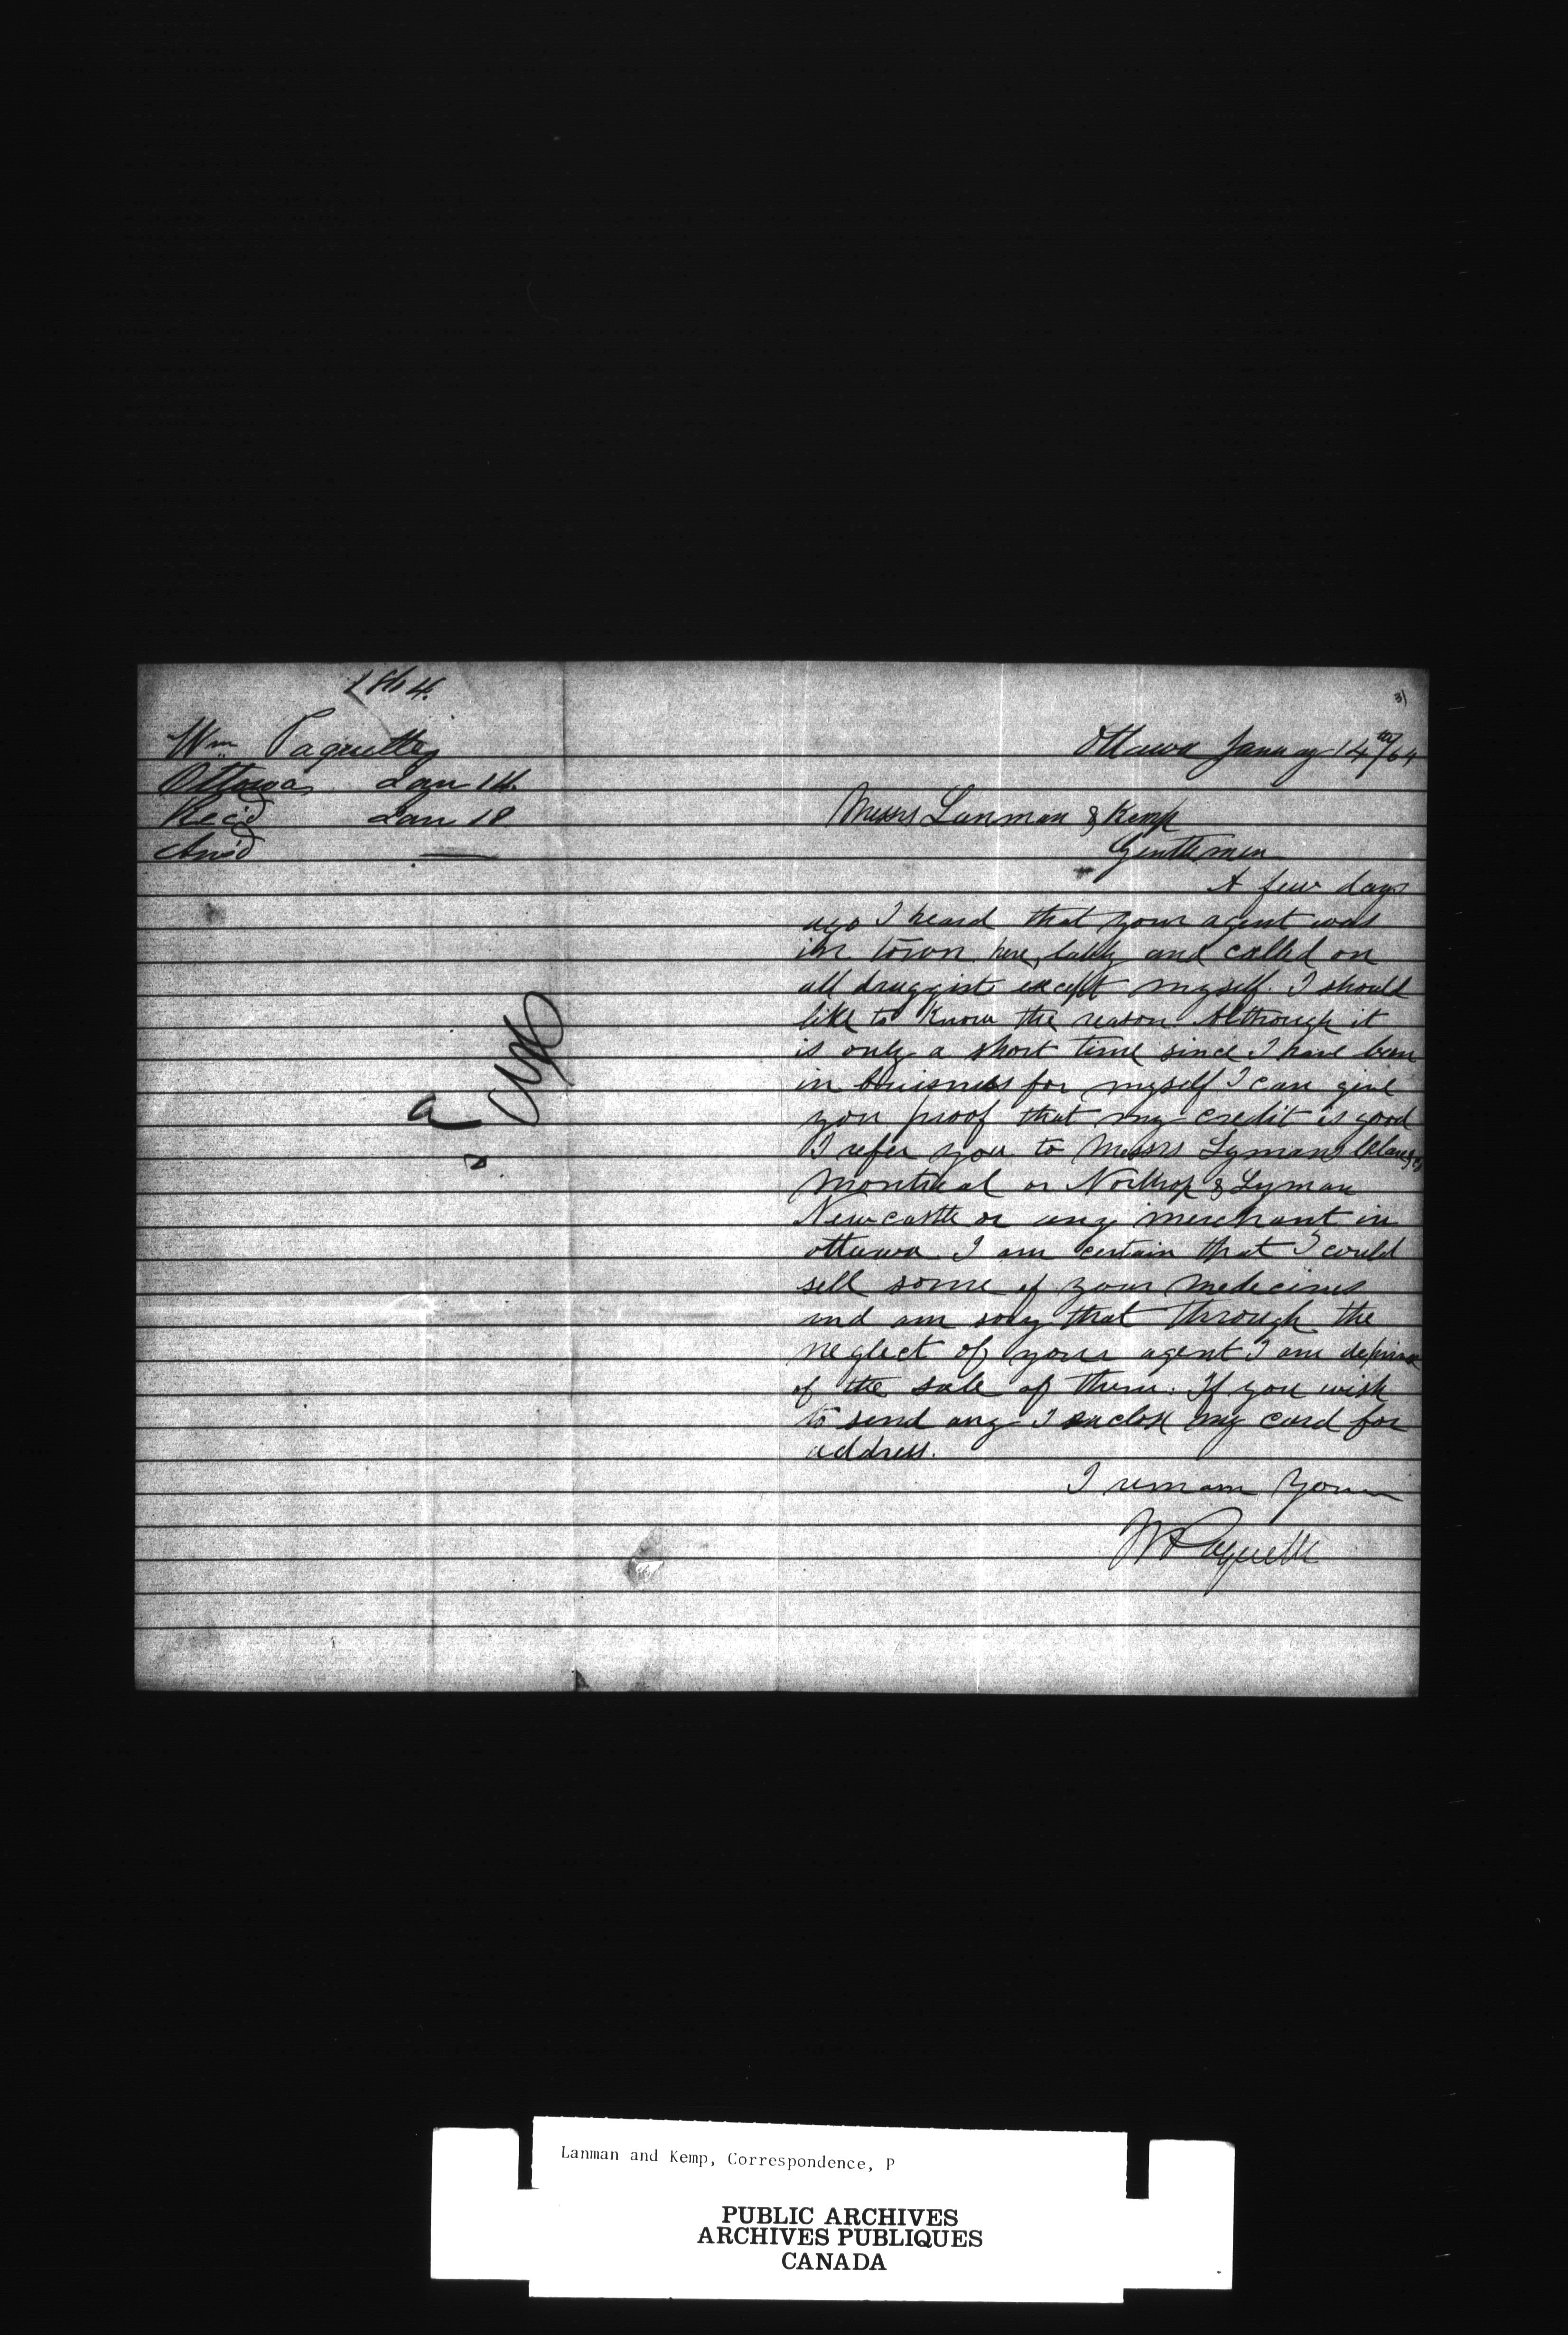 1864.
Wm Paquette
Ottawa Jan 14.
Rec'd Jan 18
Ans'd —
a
31
Ottawa January 14th/64
Messrs Lanman & Kemp
Gentlemen
A few days
ago I heard that your agent was
in town here, lately and called on
all druggists except myself. I should
like to know the reason. Although it
is only a short time since I have been
in buisness for myself I can give
you proof that my credit is good
I refer you to Messrs Lymans Clare & Co
Montreal or Northrop & Lyman
Newcastle or any merchant in
ottawa. I am certain that I could
sell some of your medecines
and am sory that through the
neglect of your agent I am deprived
of the sale of them. If you wish
to send any I enclose my card for
address.
I remain Yours
W Paquette
Lanman and Kemp, Correspondence, P
PUBLIC ARCHIVES
ARCHIVES PUBLIQUES
CANADA